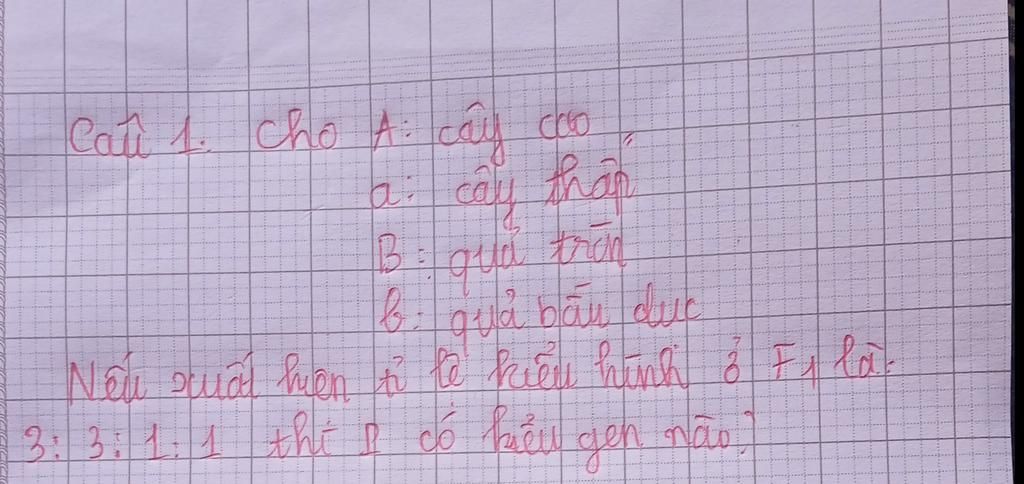 Câu 1. Cho A: cây cao
a: cây thấp
B: quả tròn
b: quả bầu dục
Nếu xuất hiện tỉ lệ kiểu hình ở F1 là:
3: 3: 1: 1 thì P có kiểu gen nào?